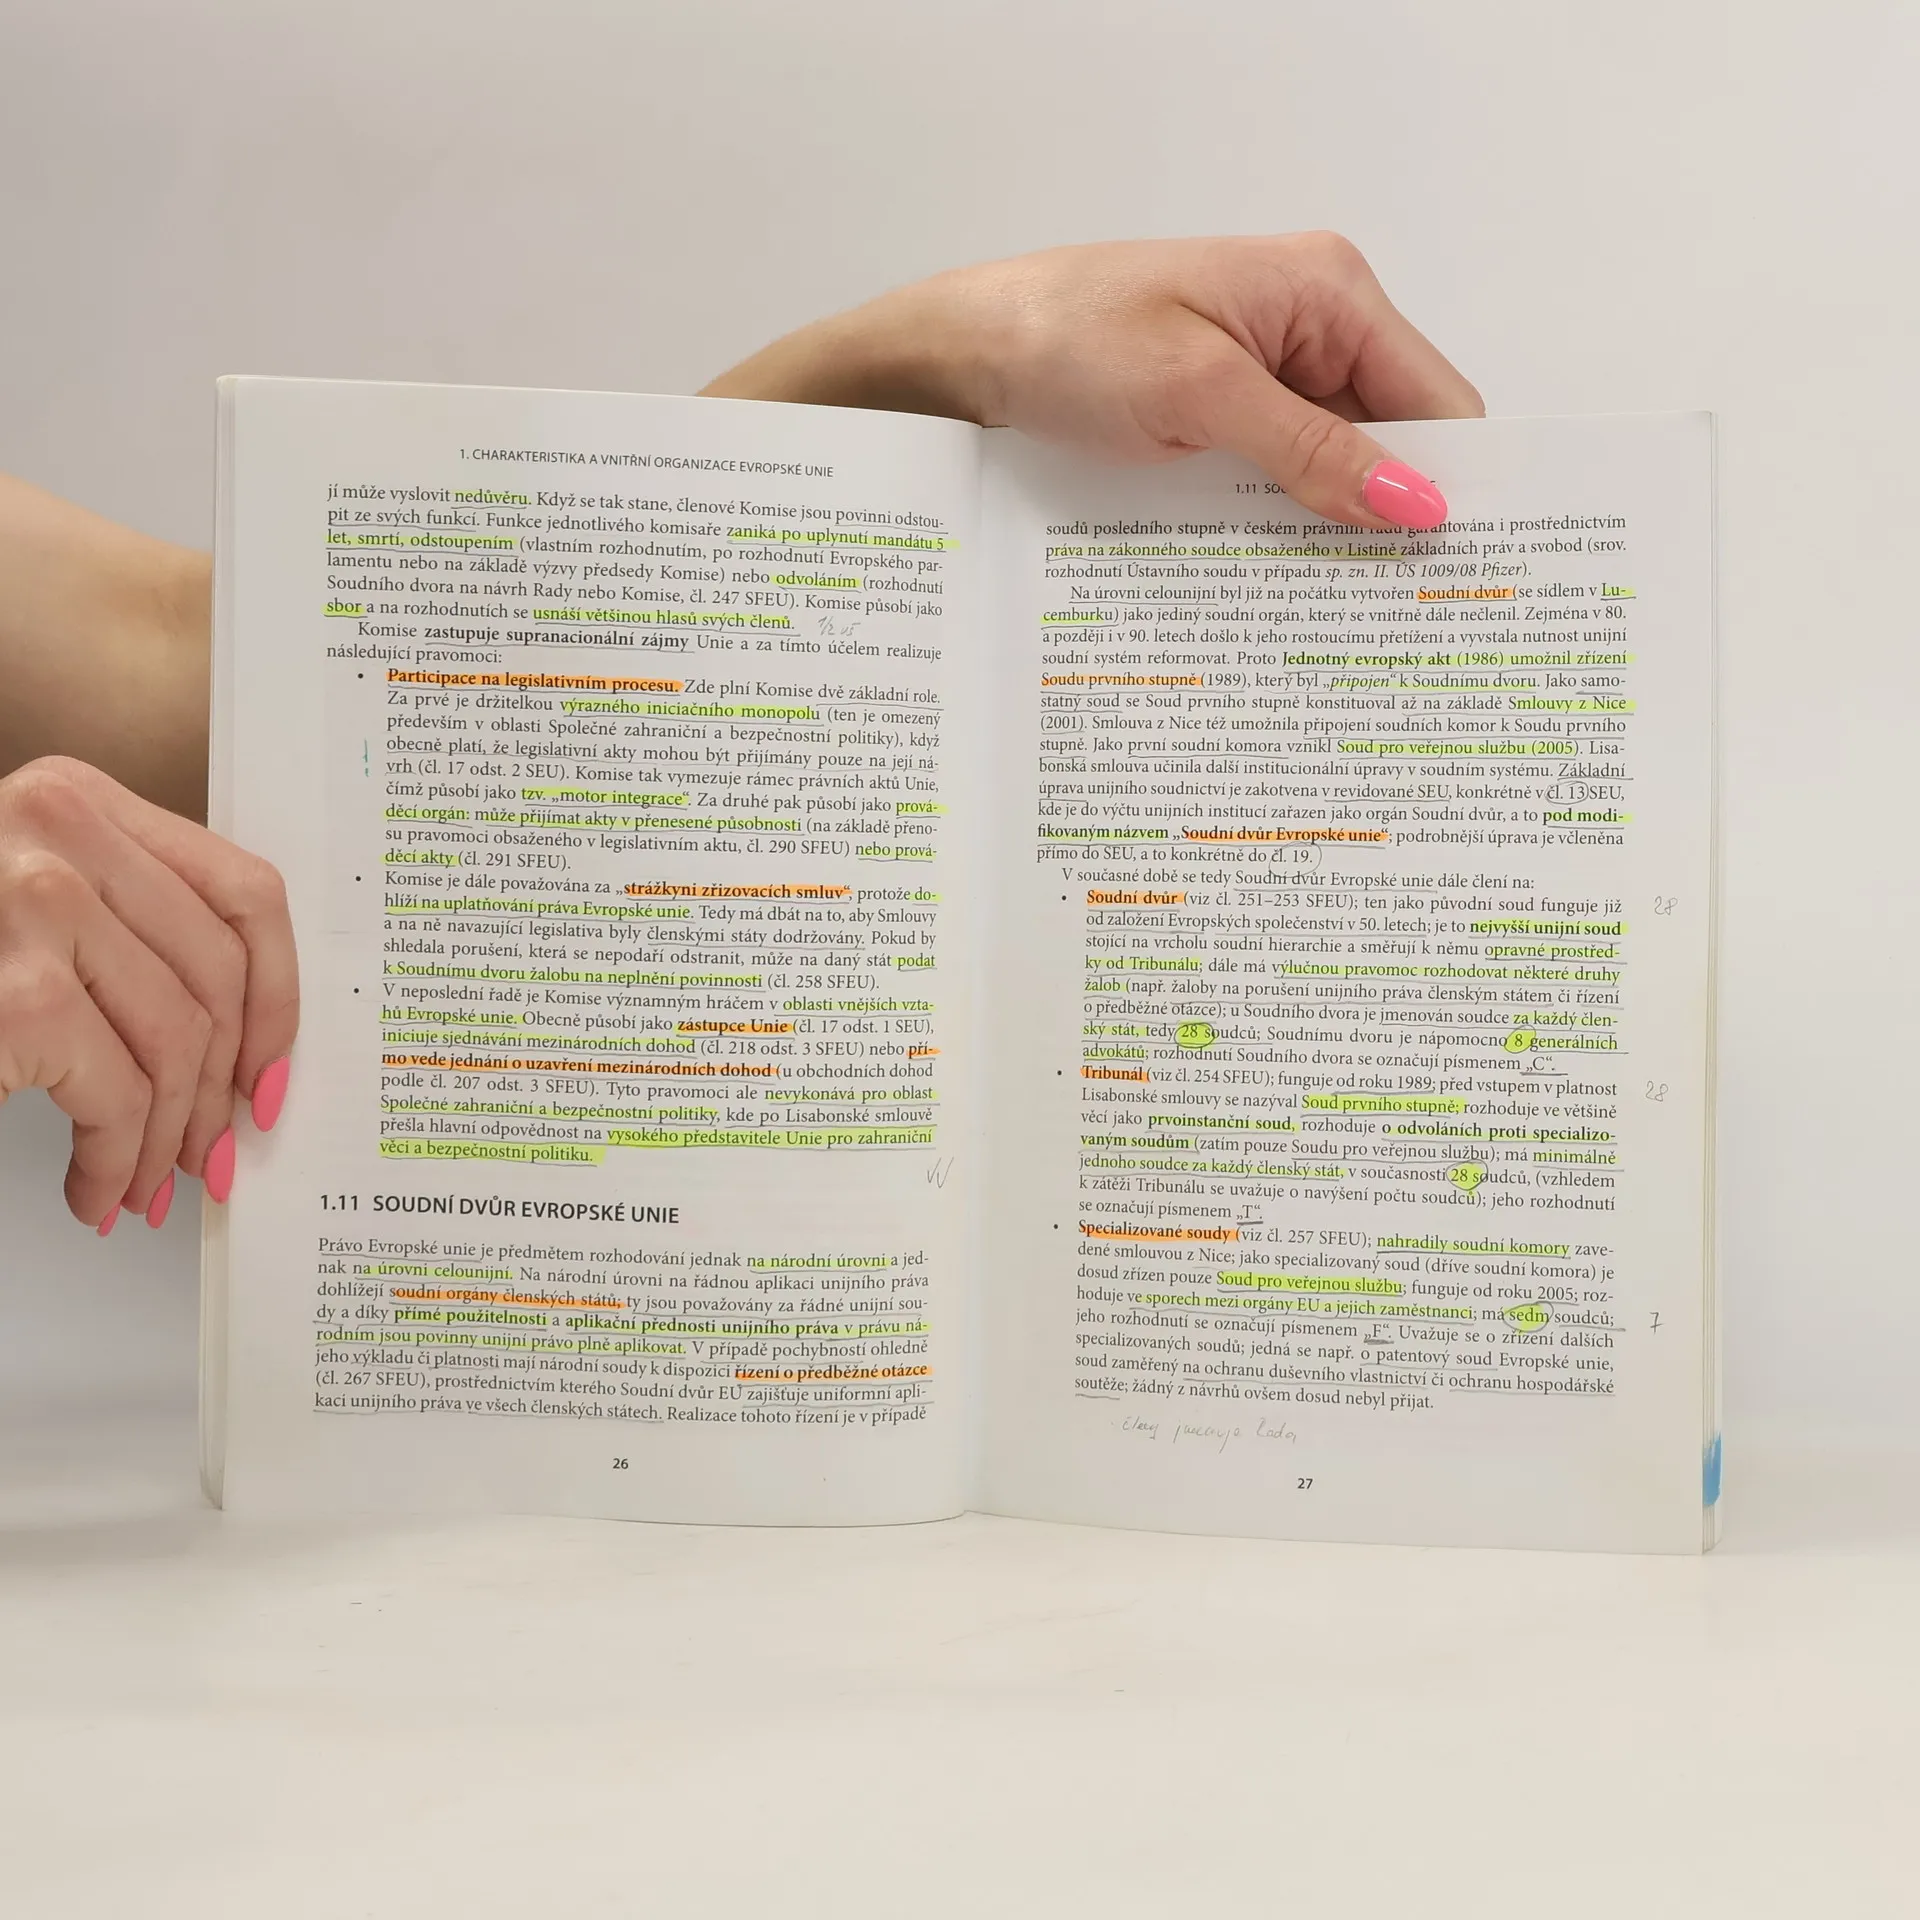 1. CHARAKTERISTIKA A VNITŘNÍ ORGANIZACE EVROPSKÉ UNIE
jí může vyslovit nedůvěru. Když se tak stane, členové Komise jsou povinni odstou-
pit ze svých funkcí. Funkce jednotlivého komisaře zaniká po uplynutí mandátu 5
let, smrtí, odstoupením (vlastním rozhodnutím, po rozhodnutí Evropského par-
lamentu nebo na základě výzvy předsedy Komise) nebo odvoláním (rozhodnutí
Soudního dvora na návrh Rady nebo Komise, čl. 247 SFEU). Komise působí jako
sbor a na rozhodnutích se usnáší většinou hlasů svých členů.
1/2
Komise zastupuje supranacionální zájmy Unie a za tímto účelem realizuje
následující pravomoci:
• Participace na legislativním procesu. Zde plní Komise dvě základní role.
Za prvé je držitelkou výrazného iniciačního monopolu (ten je omezený
především v oblasti Společné zahraniční a bezpečnostní politiky), když
obecně platí, že legislativní akty mohou být přijímány pouze na její ná-
vrh (čl. 17 odst. 2 SEU). Komise tak vymezuje rámec právních aktů Unie,
čímž působí jako tzv. „motor integrace“. Za druhé pak působí jako prová-
děcí orgán: může přijímat akty v přenesené působnosti (na základě přeno-
su pravomoci obsaženého v legislativním aktu, čl. 290 SFEU) nebo prová-
děcí akty (čl. 291 SFEU).
• Komise je dále považována za „strážkyni zřizovacích smluv“, protože do-
hlíží na uplatňování práva Evropské unie. Tedy má dbát na to, aby Smlouvy
a na ně navazující legislativa byly členskými státy dodržovány. Pokud by
shledala porušení, která se nepodaří odstranit, může na daný stát podat
k Soudnímu dvoru žalobu na neplnění povinnosti (čl. 258 SFEU).
• V neposlední řadě je Komise významným hráčem v oblasti vnějších vzta-
hů Evropské unie. Obecně působí jako zástupce Unie (čl. 17 odst. 1 SEU),
iniciuje sjednávání mezinárodních dohod (čl. 218 odst. 3 SFEU) nebo pří-
mo vede jednání o uzavření mezinárodních dohod (u obchodních dohod
podle čl. 207 odst. 3 SFEU). Tyto pravomoci ale nevykonává pro oblast
Společné zahraniční a bezpečnostní politiky, kde po Lisabonské smlouvě
přešla hlavní odpovědnost na vysokého představitele Unie pro zahraniční
věci a bezpečnostní politiku.
1.11 SOUDNÍ DVŮR EVROPSKÉ UNIE
Právo Evropské unie je předmětem rozhodování jednak na národní úrovni a jed-
nak na úrovni celounijní. Na národní úrovni na řádnou aplikaci unijního práva
dohlížejí soudní orgány členských států; ty jsou považovány za řádné unijní sou-
dy a díky přímé použitelnosti a aplikační přednosti unijního práva v právu ná-
rodním jsou povinny unijní právo plně aplikovat. V případě pochybností ohledně
jeho výkladu či platnosti mají národní soudy k dispozici řízení o předběžné otázce
(čl. 267 SFEU), prostřednictvím kterého Soudní dvůr EU zajišťuje uniformní apli-
kaci unijního práva ve všech členských státech. Realizace tohoto řízení je v případě
26
1.11
soudů posledního stupně v českém právním řádu garantována i prostřednictvím
práva na zákonného soudce obsaženého v Listině základních práv a svobod (srov.
rozhodnutí Ústavního soudu v případu sp. zn. II. ÚS 1009/08 Pfizer).
Na úrovni celounijní byl již na počátku vytvořen Soudní dvůr (se sídlem v Lu-
cemburku) jako jediný soudní orgán, který se vnitřně dále nečlenil. Zejména v 80.
a později i v 90. letech došlo k jeho rostoucímu přetížení a vyvstala nutnost unijní
soudní systém reformovat. Proto Jednotný evropský akt (1986) umožnil zřízení
Soudu prvního stupně (1989), který byl „připojen“ k Soudnímu dvoru. Jako samo-
statný soud se Soud prvního stupně konstituoval až na základě Smlouvy z Nice
(2001). Smlouva z Nice též umožnila připojení soudních komor k Soudu prvního
stupně. Jako první soudní komora vznikl Soud pro veřejnou službu (2005). Lisa-
bonská smlouva učinila další institucionální úpravy v soudním systému. Základní
úprava unijního soudnictví je zakotvena v revidované SEU, konkrétně v čl. 13 SEU,
kde je do výčtu unijních institucí zařazen jako orgán Soudní dvůr, a to pod modi-
fikovaným názvem „Soudní dvůr Evropské unie“; podrobnější úprava je včleněna
přímo do SEU, a to konkrétně do čl. 19.
V současné době se tedy Soudní dvůr Evropské unie dále člení na:
• Soudní dvůr (viz čl. 251–253 SFEU); ten jako původní soud funguje již
28
od založení Evropských společenství v 50. letech; je to nejvyšší unijní soud
stojící na vrcholu soudní hierarchie a směřují k němu opravné prostřed-
ky od Tribunálu; dále má výlučnou pravomoc rozhodovat některé druhy
žalob (např. žaloby na porušení unijního práva členským státem či řízení
o předběžné otázce); u Soudního dvora je jmenován soudce za každý člen-
ský stát, tedy 28 soudců; Soudnímu dvoru je nápomocno 8 generálních
advokátů; rozhodnutí Soudního dvora se označují písmenem „C“.
• Tribunál (viz čl. 254 SFEU); funguje od roku 1989; před vstupem v platnost
28
Lisabonské smlouvy se nazýval Soud prvního stupně; rozhoduje ve většině
věcí jako prvoinstanční soud, rozhoduje o odvoláních proti specializo-
vaným soudům (zatím pouze Soudu pro veřejnou službu); má minimálně
jednoho soudce za každý členský stát, v současnosti 28 soudců, (vzhledem
k zátěži Tribunálu se uvažuje o navýšení počtu soudců); jeho rozhodnutí
se označují písmenem „T“.
• Specializované soudy (viz čl. 257 SFEU); nahradily soudní komory zave-
dené smlouvou z Nice; jako specializovaný soud (dříve soudní komora) je
dosud zřízen pouze Soud pro veřejnou službu; funguje od roku 2005; roz-
hoduje ve sporech mezi orgány EU a jejich zaměstnanci; má sedm soudců;
7
jeho rozhodnutí se označují písmenem „F“. Uvažuje se o zřízení dalších
specializovaných soudů; jedná se např. o patentový soud Evropské unie,
soud zaměřený na ochranu duševního vlastnictví či ochranu hospodářské
soutěže; žádný z návrhů ovšem dosud nebyl přijat.
členy jmenuje Rada
27